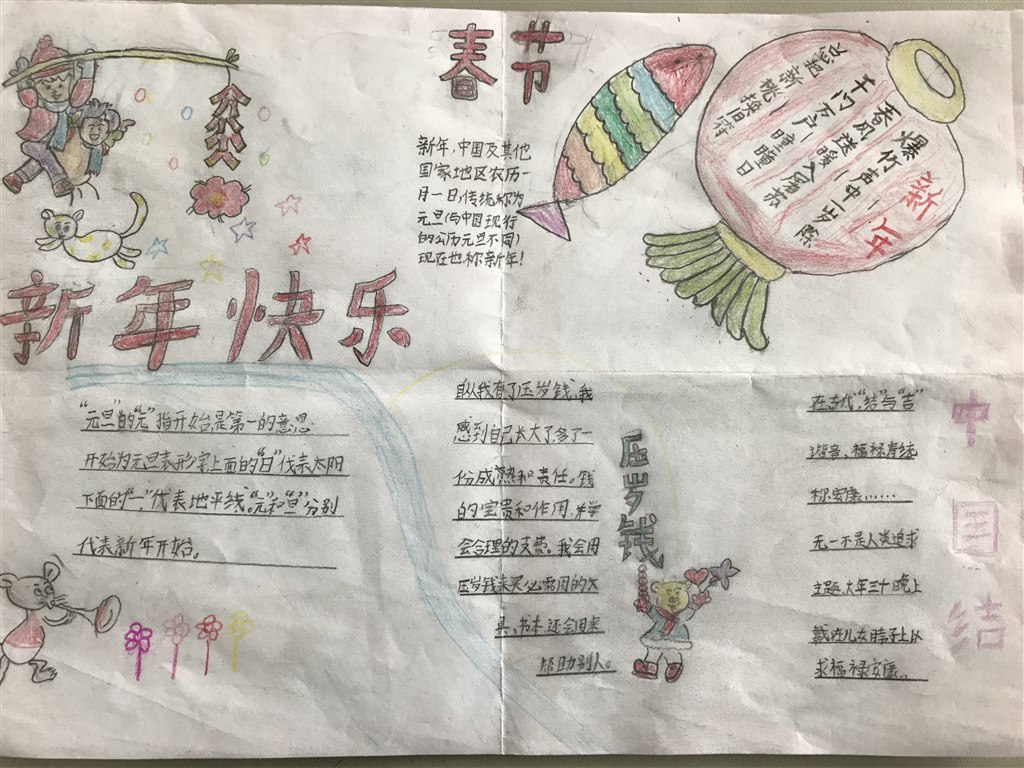 春节
新年,中国及其他
国家地区农历一
月一日,传统称为
元旦(与中国现行
的公历元旦不同)
现在也称新年!
新年
爆竹声中一岁除
春风送暖入屠苏
千门万户曈曈日
总把新桃换旧符
新年快乐
“元旦”的“元”指开始是第一的意思
开始为元旦表形字上面的“日”代表太阳
下面的“一”代表地平线。“元”和“旦”分别
代表新年开始。
压岁钱
自从我有了压岁钱,我
感到自己长大了多了一
份成熟和责任。钱
的宝贵和作用,
会合理的支费。我会用
压岁钱来买必需用的文
具,书本还会用来
帮助别人。
中国结
在古代“结”与“吉”
谐音、福禄寿
称安康……
无一不是人类追求
主题,大年三十晚上
戴在儿女脖子上以
求福禄安康。